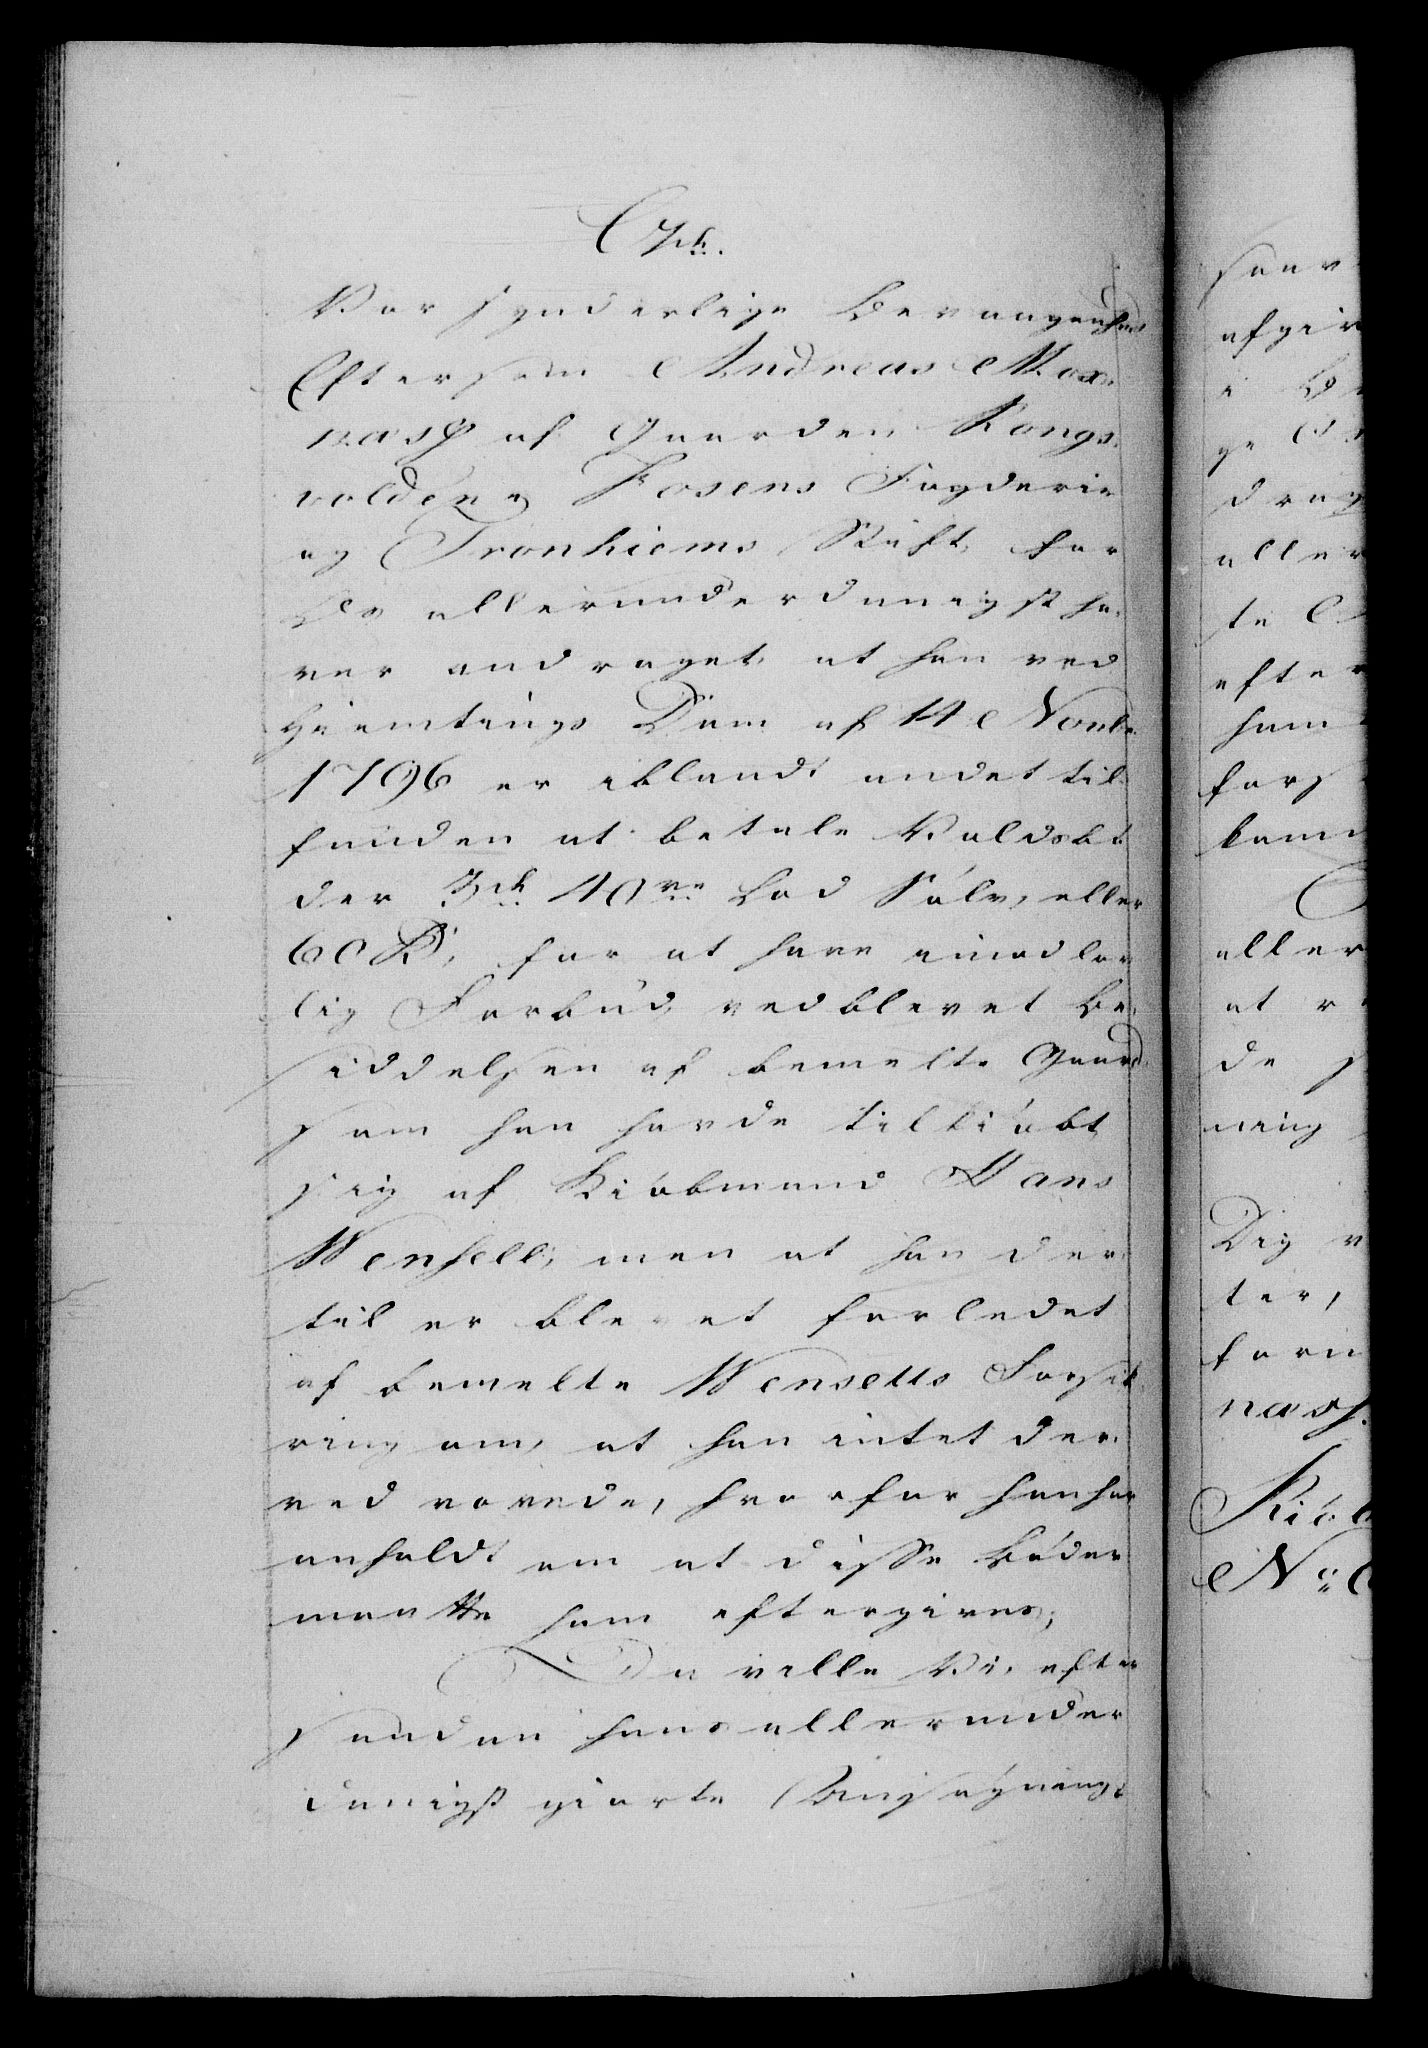 C 7ch.
Vor synderlige Bevaagenhed
Eftersom Andreas Mox¬
næss af Gaarden Rongs¬
voldene Fosens Fogderie
og Tronhiems Stift, for
Os allerunderdanigst ha¬
ver andraget, at han ved
Hiemtings Dom af 14 Novbr.
1796 er iblandt andet til¬
funden at betale Voldsbö
der 3de 40ve Lod Sölv, eller
60 Rd, for at have imod lov
lig Forbud, vedblevet Be¬
siddelsen af bemelte Gaard
som han havde tilkiöbt
sig af Kiöbmand Hans
Wensell, men at han der
til er blevet forledet
af bemelte Wensells Forsik
ring om, at han intet der¬
ved vovede, hvorfor han har
anholdt om at disse Böder
maatte ham eftergives;
Da ville Vi, efter
saadan hans allerunder
danigst giorte Ansögning
saav
afgiv
i
ge
drag
aller
te
efter
ham
fors
kam
aller
at
de
ning
Dig v
ter,
forn
næss.
Kiöb
No